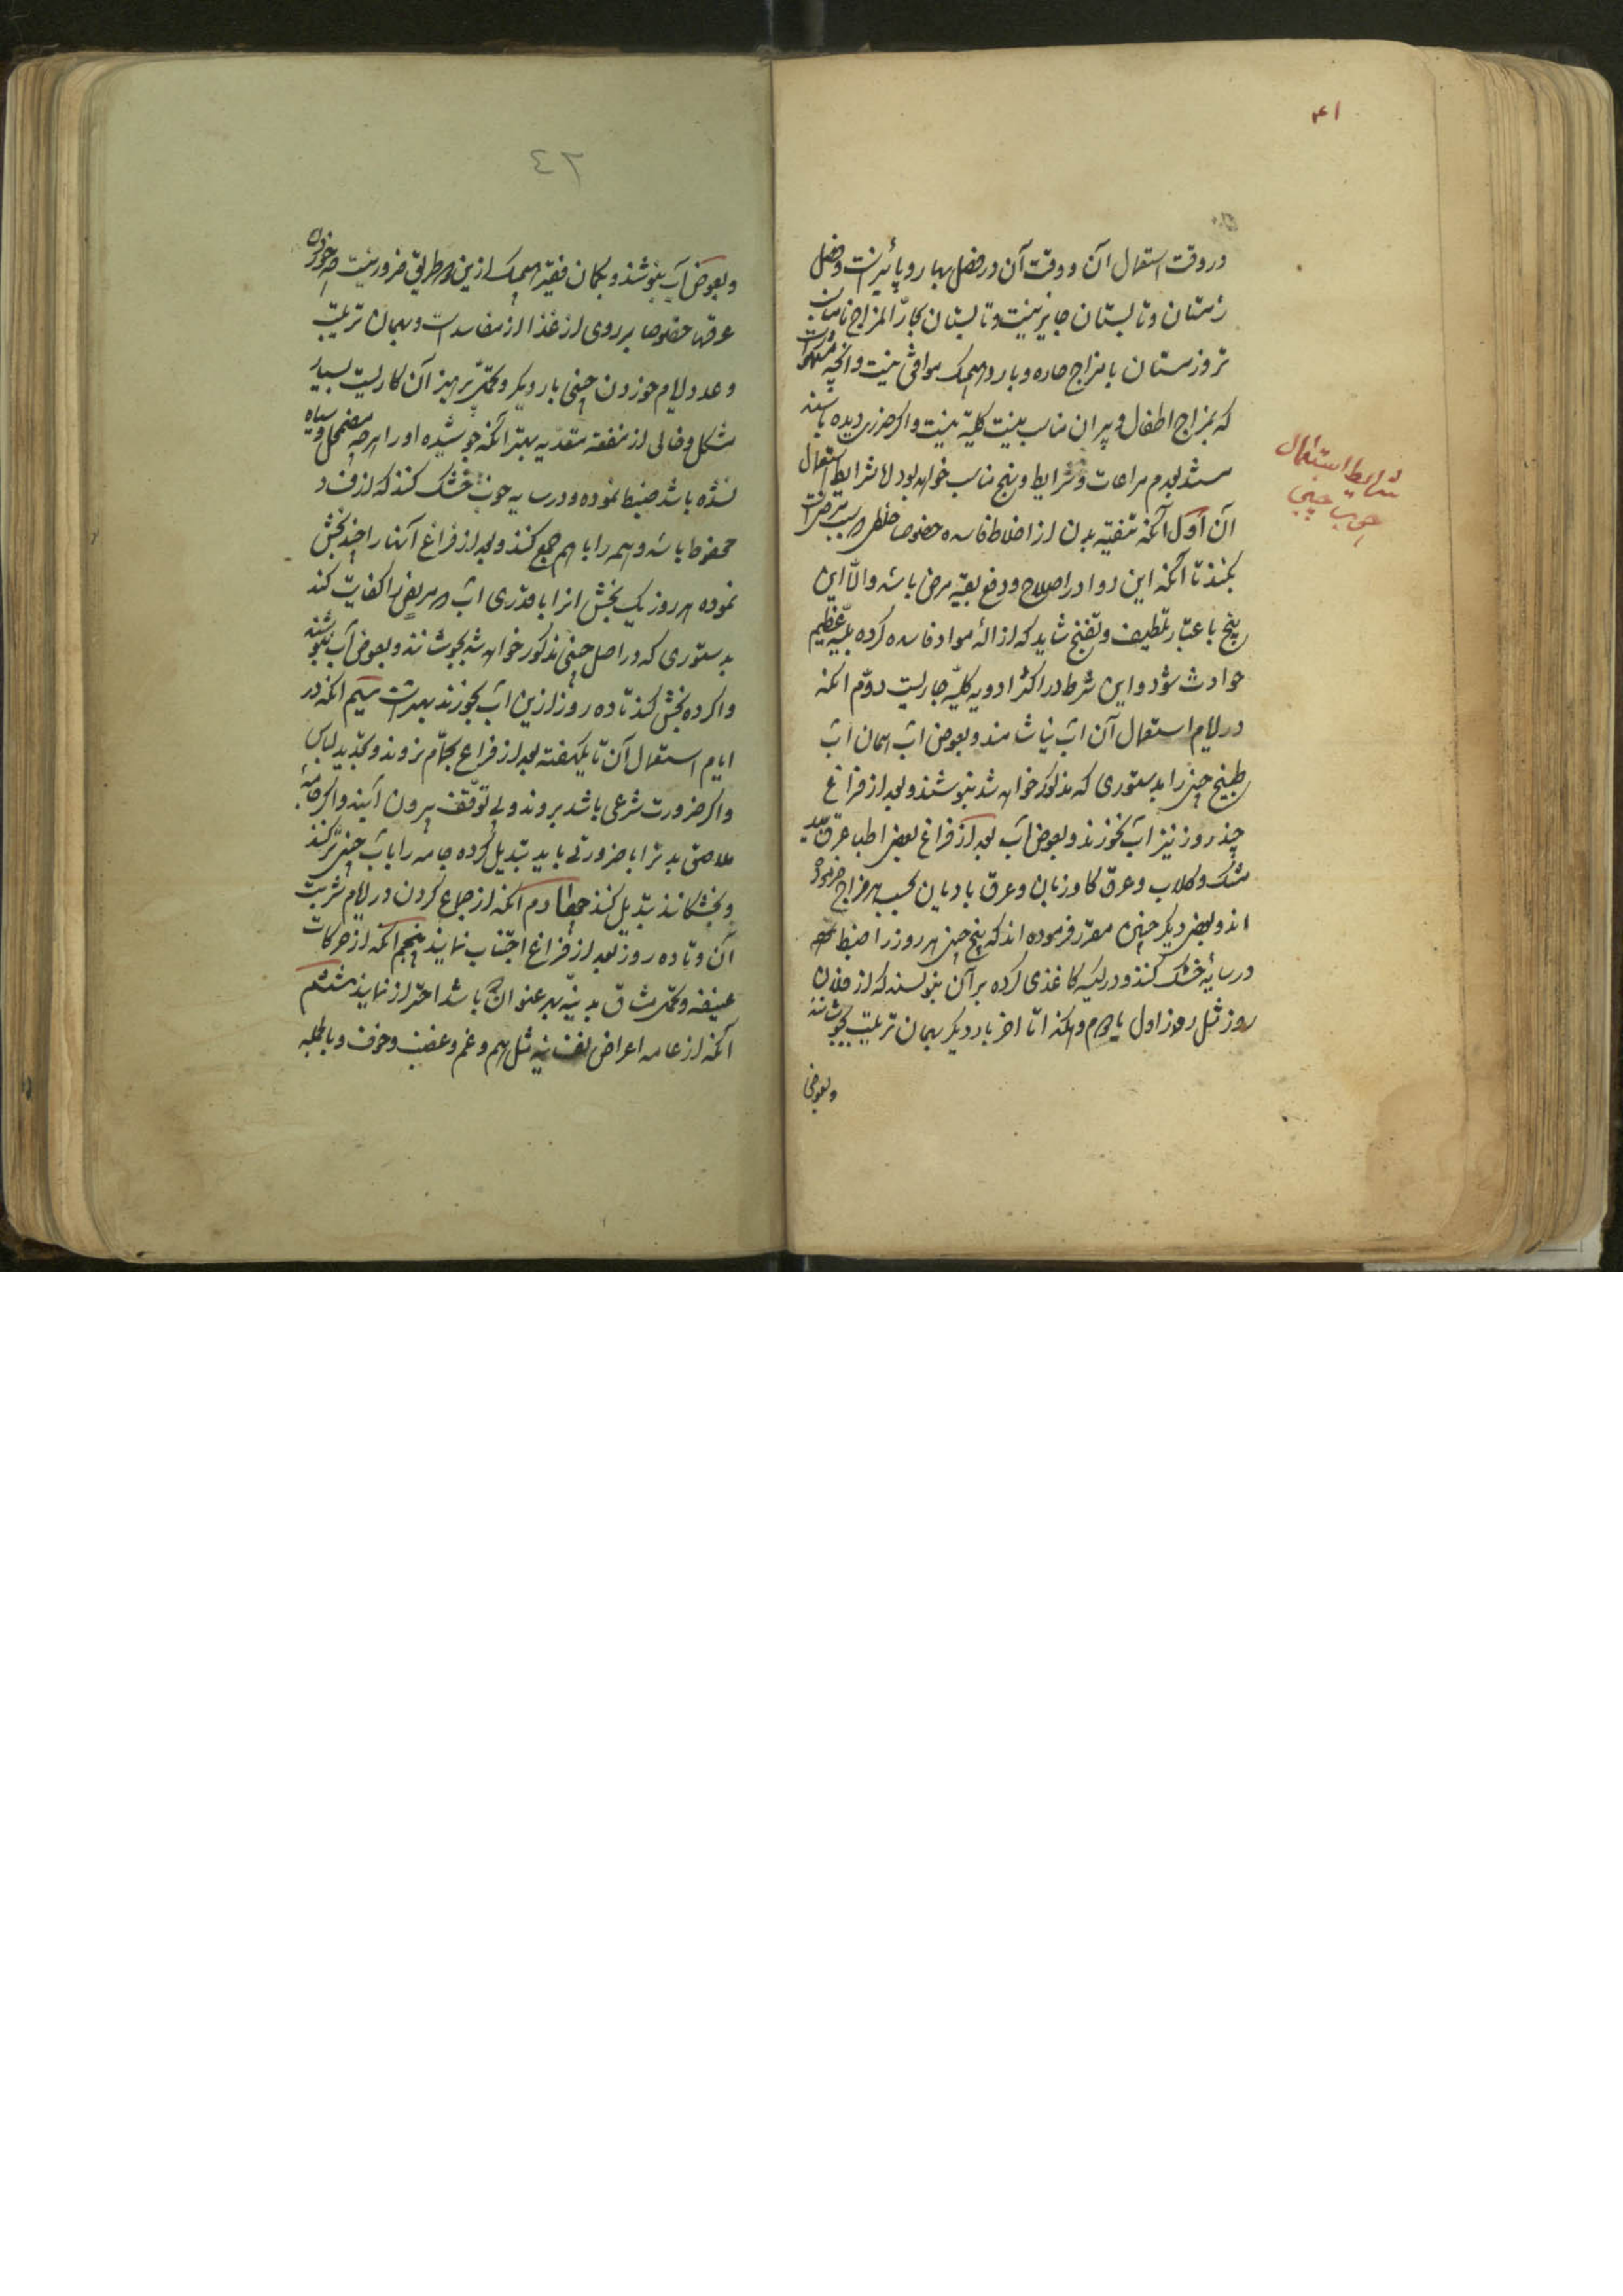 ۴۱
در وقت استعمال آن و وقت آن در فصل بهار و پائیز است و فصل
زمستان و تابستان جایز نیست و تابستان بحارّ المزاج نامناسب
تر و زمستان بامزاج حاره و بارد هیچیک موافق نیست و آنچه مشهور است
که بمزاج اطفال و پیران مناسب نیست کلیّه نیست و اگر ضرری دیده باشند
بعدم مراعات و شرایط و پنج مناسب خواهد بود امّا شرایط استعمال
آن اوّل آنکه تنقیه بدن از اخلاط فاسده خصوصا خلطی که سبب مرض است
بکنند تا آنکه این دوا در اصلاح و دفع بقیّه مرض باشد والّا این
پنج باعتبار تلطیف و تفتیح شاید که ازالهٔ مواد فاسده کرده بلیّهٔ عظیم
حوادث شود و این شرط در اکثر ادویه کلیّه جاریست دوّم آنکه
در ایام استعمال آن آب نیاشامند و بعوض آب همان آب
طبیخ چینی را بدستوری که مذکور خواهد شد بنوشند و بعد از فراغ
چند روز نیز آب نخورند و بعوض آب بعد از فراغ بعضی اطبا عرق بید
مشک و گلاب و عرق کاوزبان و عرق بادیان بحسب هر مزاج فرموده
اند و بعضی دیگر چنین مقرر فرموده اند که پنج چینی هر روز را ضبط نموده
در سایه خشک کنند و در کیسه کاغذی کرده بر آن بنویسند که از فلان
روز مثل روز اول یا دوم و هکذا تا آخر بار دیگر بهمان ترتیب بجوشانند
و بعوض
شرایط استعمال
چوب چینی
٤٢
و بعوض آب بنوشند و بگمان فقیر هیچیک ازین دو طریق ضرور نیست چه خوردن
عرقها خصوصا بر روی از غذا از مفاسد است و بهمان ترتیب
و عدد ایام خوردن چینی بار دیگر و تحمّل پرهیز آن کاریست بسیار
مشکل و خالی از منفعة متعدّیه بهتر آنکه جوشیده او را هرچه مضمحل و سیاه
نشده باشد ضبط نموده و در سایه خوب خشک کنند که از فساد
محفوظ باشد و همه را با هم جمع کنند و بعد از فراغ آنها را چند بخش
نموده هر روز یک بخش آنرا با قدری آب که مریض را کفایت کند
بدستوری که در اصل چینی مذکور خواهد شد بجوشانند و بعوض آب بنوشند
و اگر ده بخش کنند تا ده روز ازین آب بخورند بهتر است سیّم آنکه در
ایام استعمال آن تا یکهفته بعد از فراغ بحمّام نروند و تجدید لباس
و اگر ضرورت شرعی باشد بروند و بی توقّف بیرون آیند و اگر جامهٔ
ملاصق بدن را بضرورتی باید تبدیل کرده جامه را بآب چینی تر کنند
و بخشکانند تبدیل کنند چهارم آنکه از جماع کردن در ایام شربت
آن و تا ده روز بعد از فراغ اجتناب نمایند پنجم آنکه از حرکات
عنیفه و تحمّل مشاق بدنیّه بهر عنوان که باشد احتراز نمایند ششم
آنکه از عامه اعراض نفسانیه مثل هم و غم و غضب و خوف و بالجمله